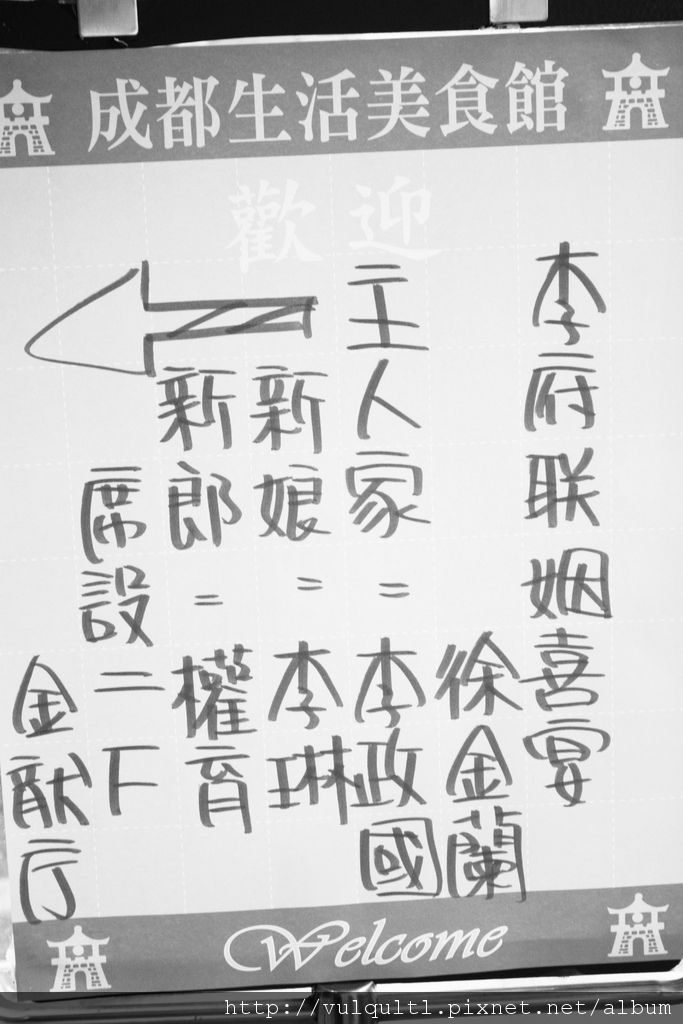 成都生活美食館
歡迎
李府联姻喜宴
徐金蘭
主人家=李政國
新娘=李琳
新郎=權育
席設二F
金献厅
Welcome
http://vulqult1.pixnet.net/album